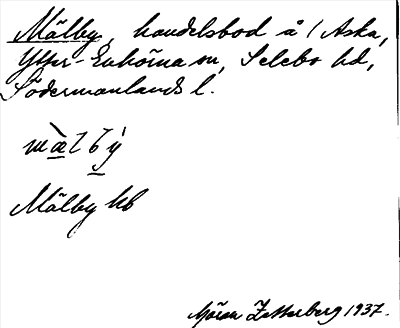 Mälby, handelsbod å / Aska,
Ytter-Enhörna sn, Selebo hd,
Södermanlands l.
mälbý
Mälby hb
Göran Zetterberg 1937.